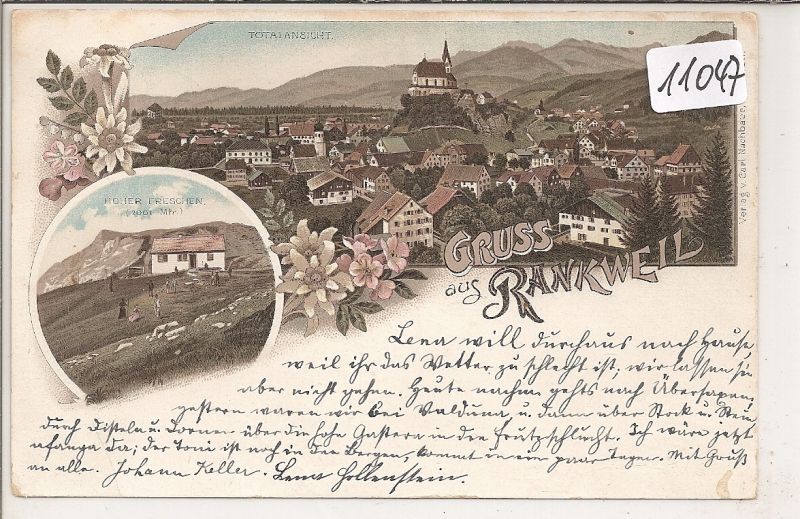 TOTALANSICHT.
11047
Verlag v. Carl Nachbauer,
HOHER FRESCHEN.
(2001 Mtr.)
GRUSS
aus RANKWEIL
Lena will durchaus nach Hause,
weil ihr das Wetter zu schlecht ist, wir lassen sie
aber nicht gehen. Heute nachm. gehts nach Übersaxen
gestern waren wir bei Valduna u. dann über Stock u. Stein
durch Disteln u. Dornen über die hohe Gastera in die Frutzschlucht. Ich wäre jetzt
anfangs da; der Toni ist noch in den Bergen, kommt in ein paar Tagen. Mit Gruß
an alle. Johann Keller. Lena Hollenstein.